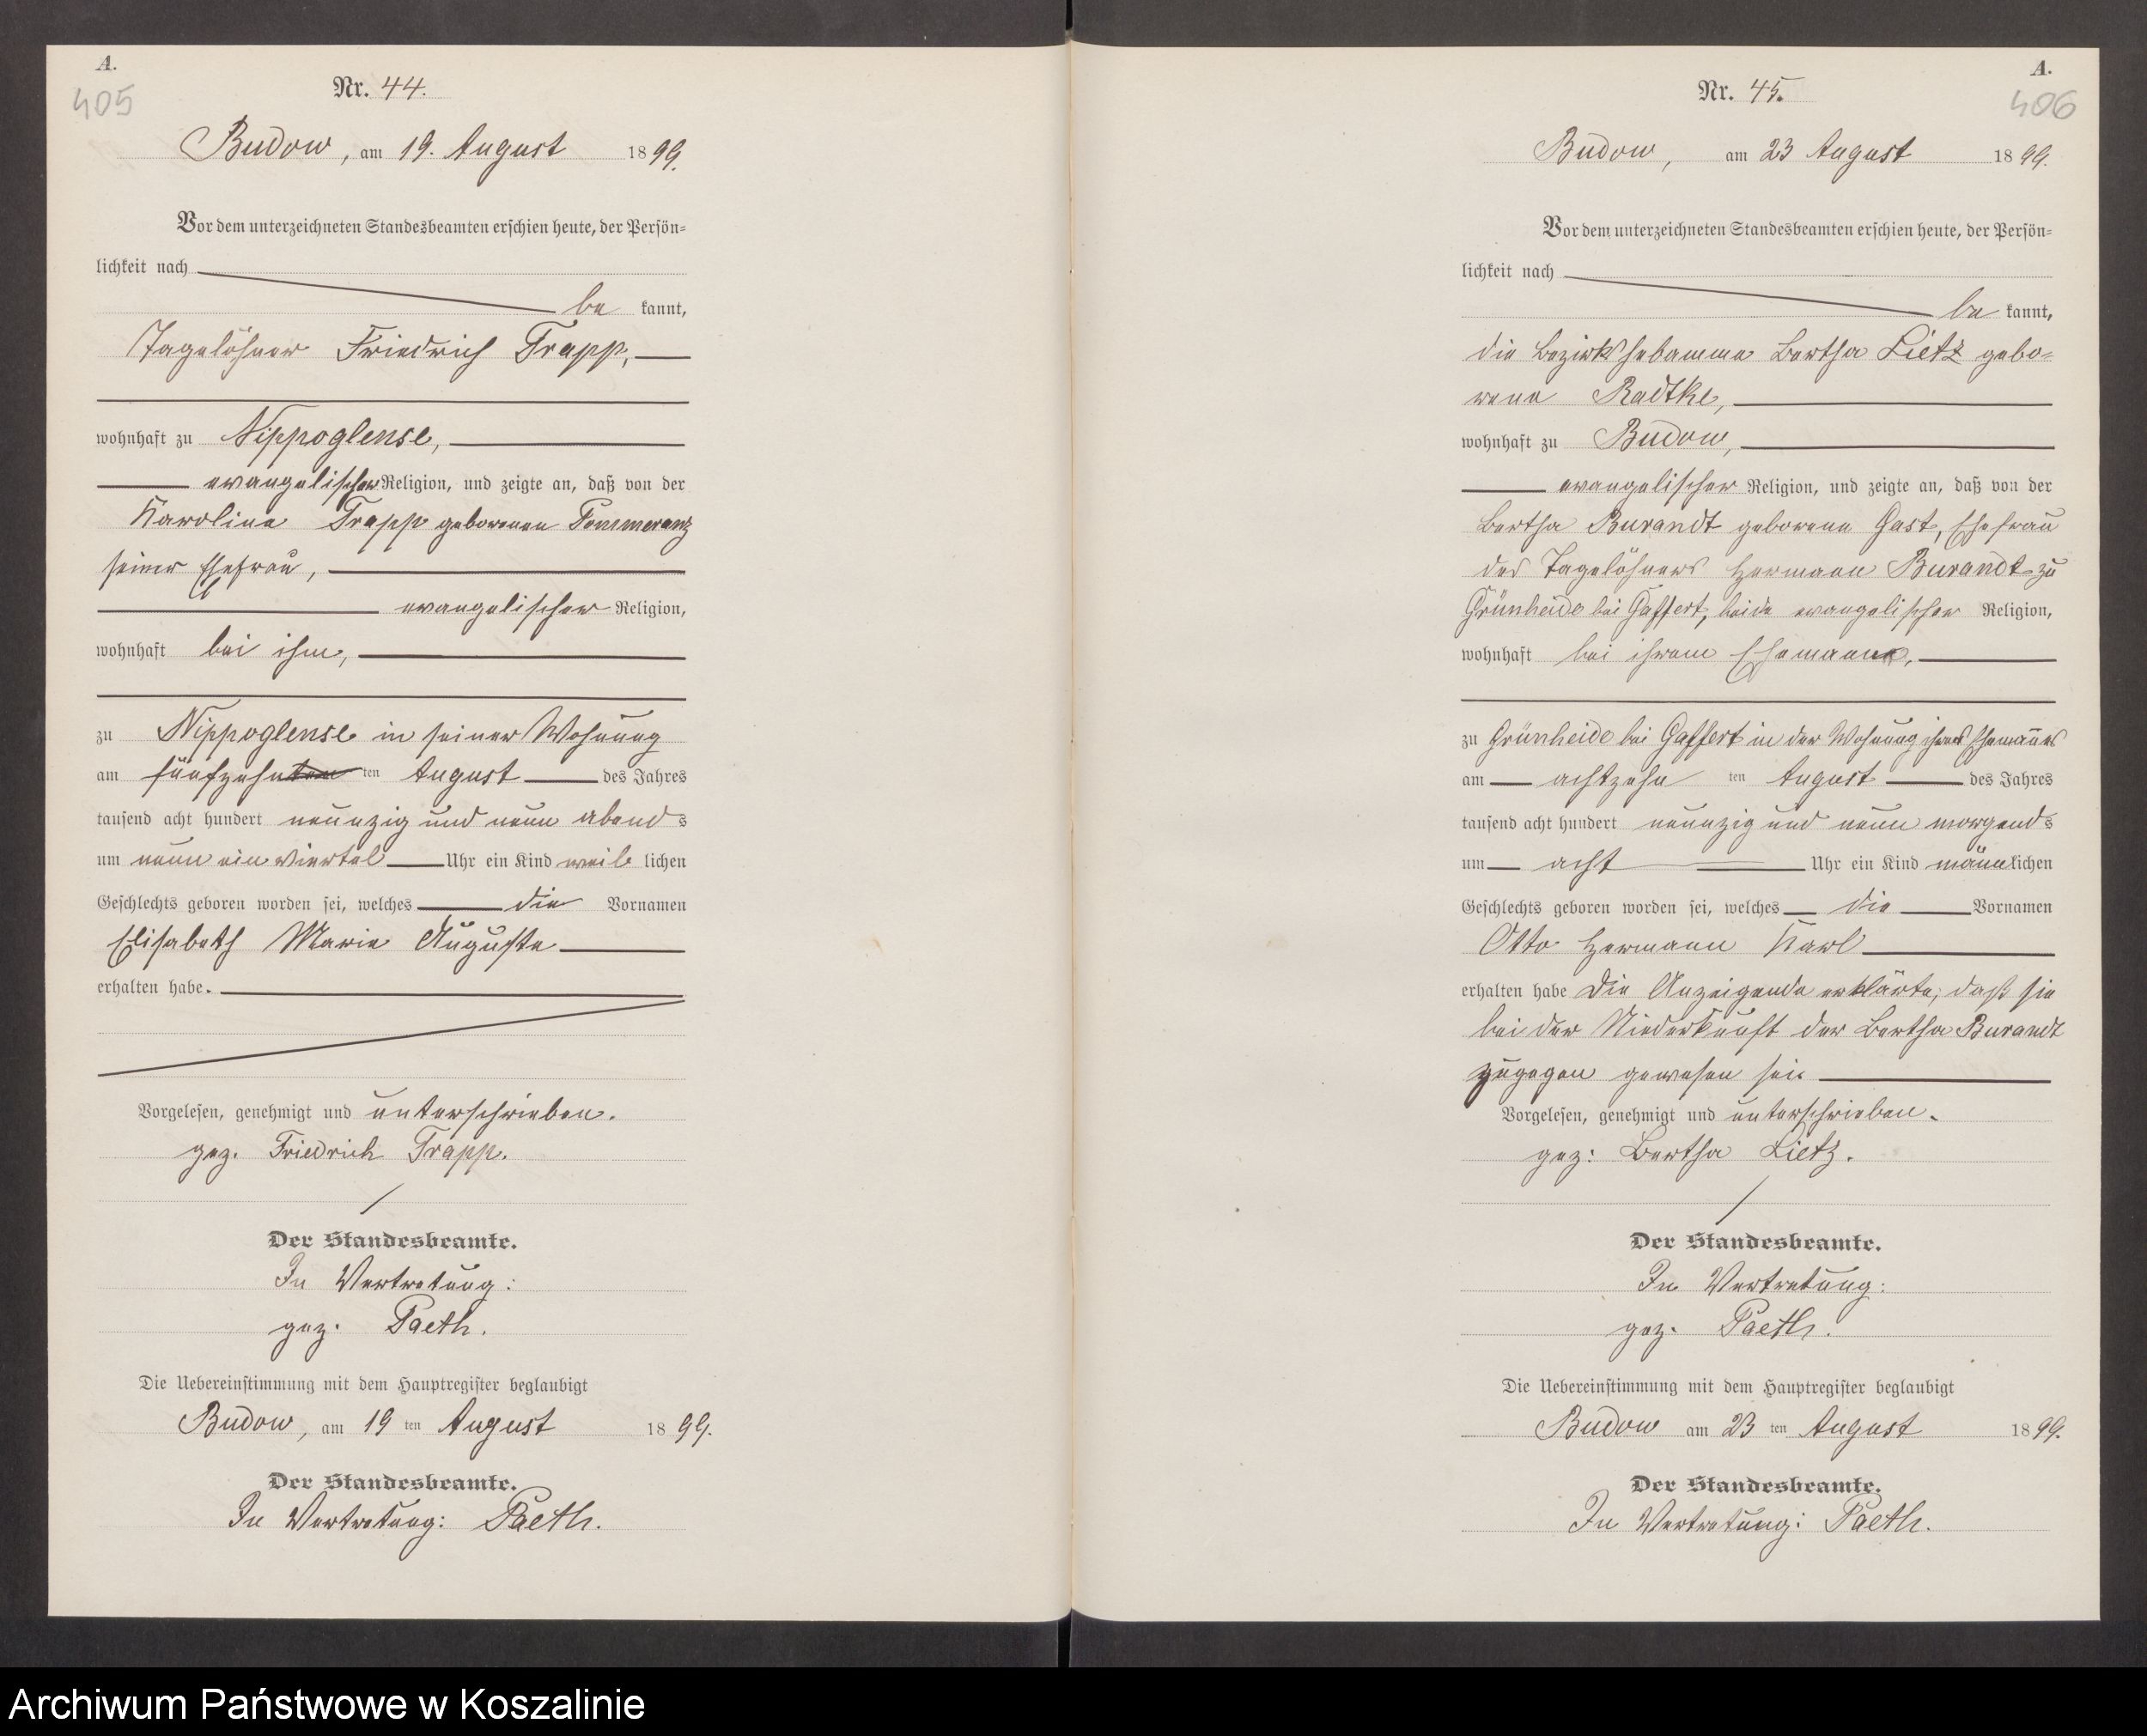 A.
405
Nr. 44.
Budow, am 19. August 1899.
Vor dem unterzeichneten Standesbeamten erschien heute, der Persön-
lichkeit nach
be kannt,
Tagelöhner Friedrich Trapp,
wohnhaft zu Nippoglense,
evangelischer Religion, und zeigte an, daß von der
Karoline Trapp geborenen Pommeranz
seiner Ehefrau,
evangelischer Religion,
wohnhaft bei ihm,
zu Nippoglense in seiner Wohnung
am fünfzehnten ten August des Jahres
tausend acht hundert neunzig und neun abends
um neun ein viertel Uhr ein Kind weib lichen
Geschlechts geboren worden sei, welches die Vornamen
Elisabeth Marie Auguste
erhalten habe.
Vorgelesen, genehmigt und unterschrieben.
gez. Friedrich Trapp.
Der Standesbeamte.
In Vertretung:
gez. Paeth.
Die Uebereinstimmung mit dem Hauptregister beglaubigt
Budow, am 19 ten August 1899.
Der Standesbeamte.
In Vertretung: Paeth.
A.
406
Nr. 45.
Budow, am 23 August 1899.
Vor dem unterzeichneten Standesbeamten erschien heute, der Persön-
lichkeit nach
be kannt,
die Bezirkshebamme Bertha Lietz gebo-
rene Radtke,
wohnhaft zu Budow,
evangelischer Religion, und zeigte an, daß von der
Bertha Burandt geborene Gast, Ehefrau
des Tagelöhners Hermann Burandt zu
Grünheide bei Gaffert, beide evangelischer Religion,
wohnhaft bei ihrem Ehemanne,
zu Grünheide bei Gaffert in der Wohnung ihres Ehemannes
am achtzehn ten August des Jahres
tausend acht hundert neunzig und neun morgends
um acht Uhr ein Kind männlichen
Geschlechts geboren worden sei, welches die Vornamen
Otto Hermann Karl
erhalten habe Die Anzeigende erklärte, daß sie
bei der Niederkunft der Bertha Burandt
zugegen gewesen sei.
Vorgelesen, genehmigt und unterschrieben.
gez: Bertha Lietz.
Der Standesbeamte.
In Vertretung:
gez. Paeth.
Die Uebereinstimmung mit dem Hauptregister beglaubigt
Budow am 23 ten August 1899.
Der Standesbeamte.
In Vertretung: Paeth.
Archiwum Państwowe w Koszalinie